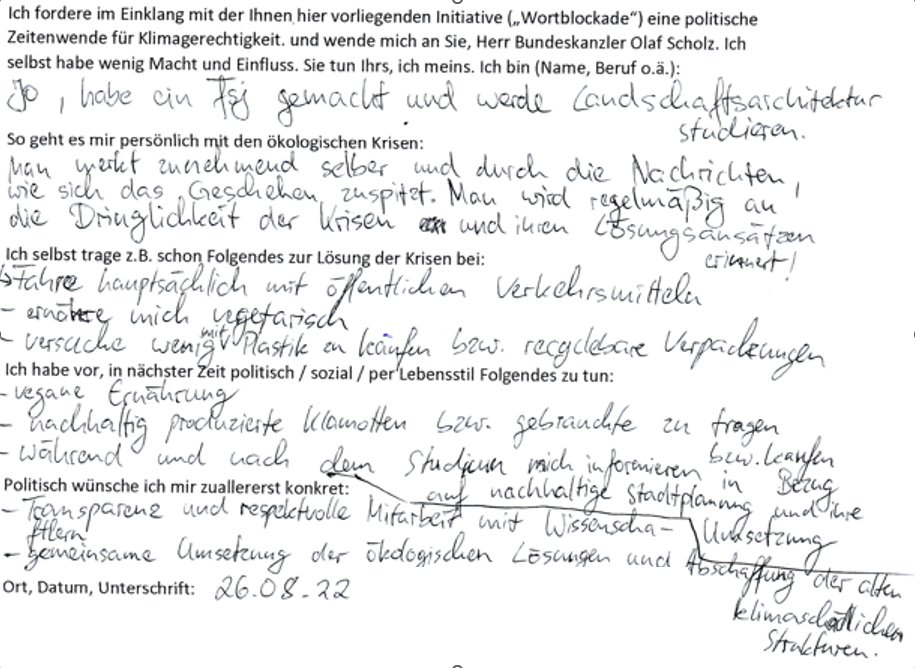 Ich fordere im Einklang mit der Ihnen hier vorliegenden Initiative („Wortblockade“) eine politische
Zeitenwende für Klimagerechtigkeit. und wende mich an Sie, Herr Bundeskanzler Olaf Scholz. Ich
selbst habe wenig Macht und Einfluss. Sie tun Ihrs, ich meins. Ich bin (Name, Beruf o.ä.):
Jo, habe ein Fsj gemacht und werde Landschaftsarchitektur
studieren.
So geht es mir persönlich mit den ökologischen Krisen:
Man merkt zunehmend selber und durch die Nachrichten,
wie sich das Geschehen zuspitzt. Man wird regelmäßig an
die Dringlichkeit der Krisen und ihren Lösungsansätzen
erinnert!
Ich selbst trage z.B. schon Folgendes zur Lösung der Krisen bei:
Fahre hauptsächlich mit öffentlichen Verkehrsmitteln
- ernähre mich vegetarisch
- versuche wenig mit Plastik zu kaufen bzw. recyclebare Verpackungen
Ich habe vor, in nächster Zeit politisch / sozial / per Lebensstil Folgendes zu tun:
- vegane Ernährung
- nachhaltig produzierte Klamotten bzw. gebrauchte zu tragen
bzw. kaufen
- Während und nach dem Studium mich informieren in Bezug
auf nachhaltige Stadtplanung und ihre
Umsetzung
Politisch wünsche ich mir zuallererst konkret:
- Transparenz und respektvolle Mitarbeit mit Wissenscha-
ftlern
- gemeinsame Umsetzung der ökologischen Lösungen und Abschaffung der alten
klimaschädlichen
Strukturen.
Ort, Datum, Unterschrift: 26.08.22